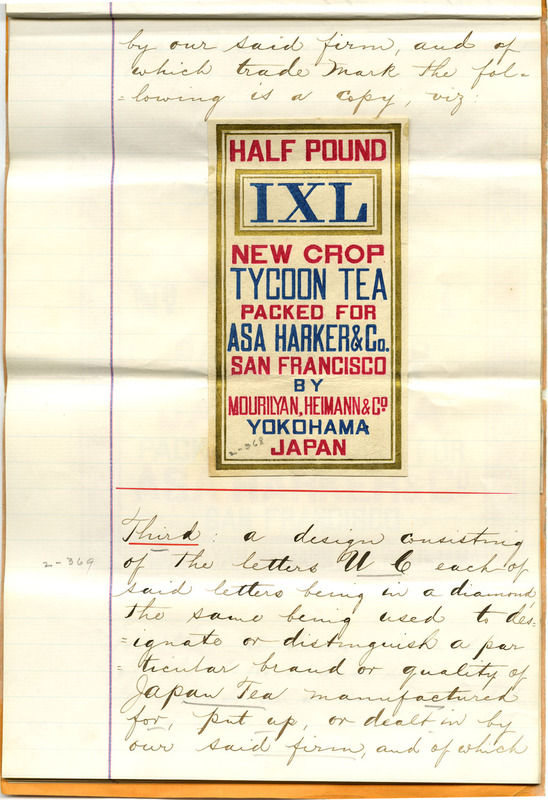 by our said firm, and of
which trade mark the fol=
=lowing is a copy, viz:
HALF POUND
IXL
NEW CROP
TYCOON TEA
PACKED FOR
ASA HARKER & Co.
SAN FRANCISCO
BY
MOURILYAN, HEIMANN & Co
YOKOHAMA
2-368
JAPAN
Third: a design consisting
2-369
of the letters U C each of
said letters being in a diamond
the same being used to des=
=ignate or distinguish a par
=ticular brand or quality of
Japan Tea manufactured
for, put up, or dealt in by
our said firm, and of which